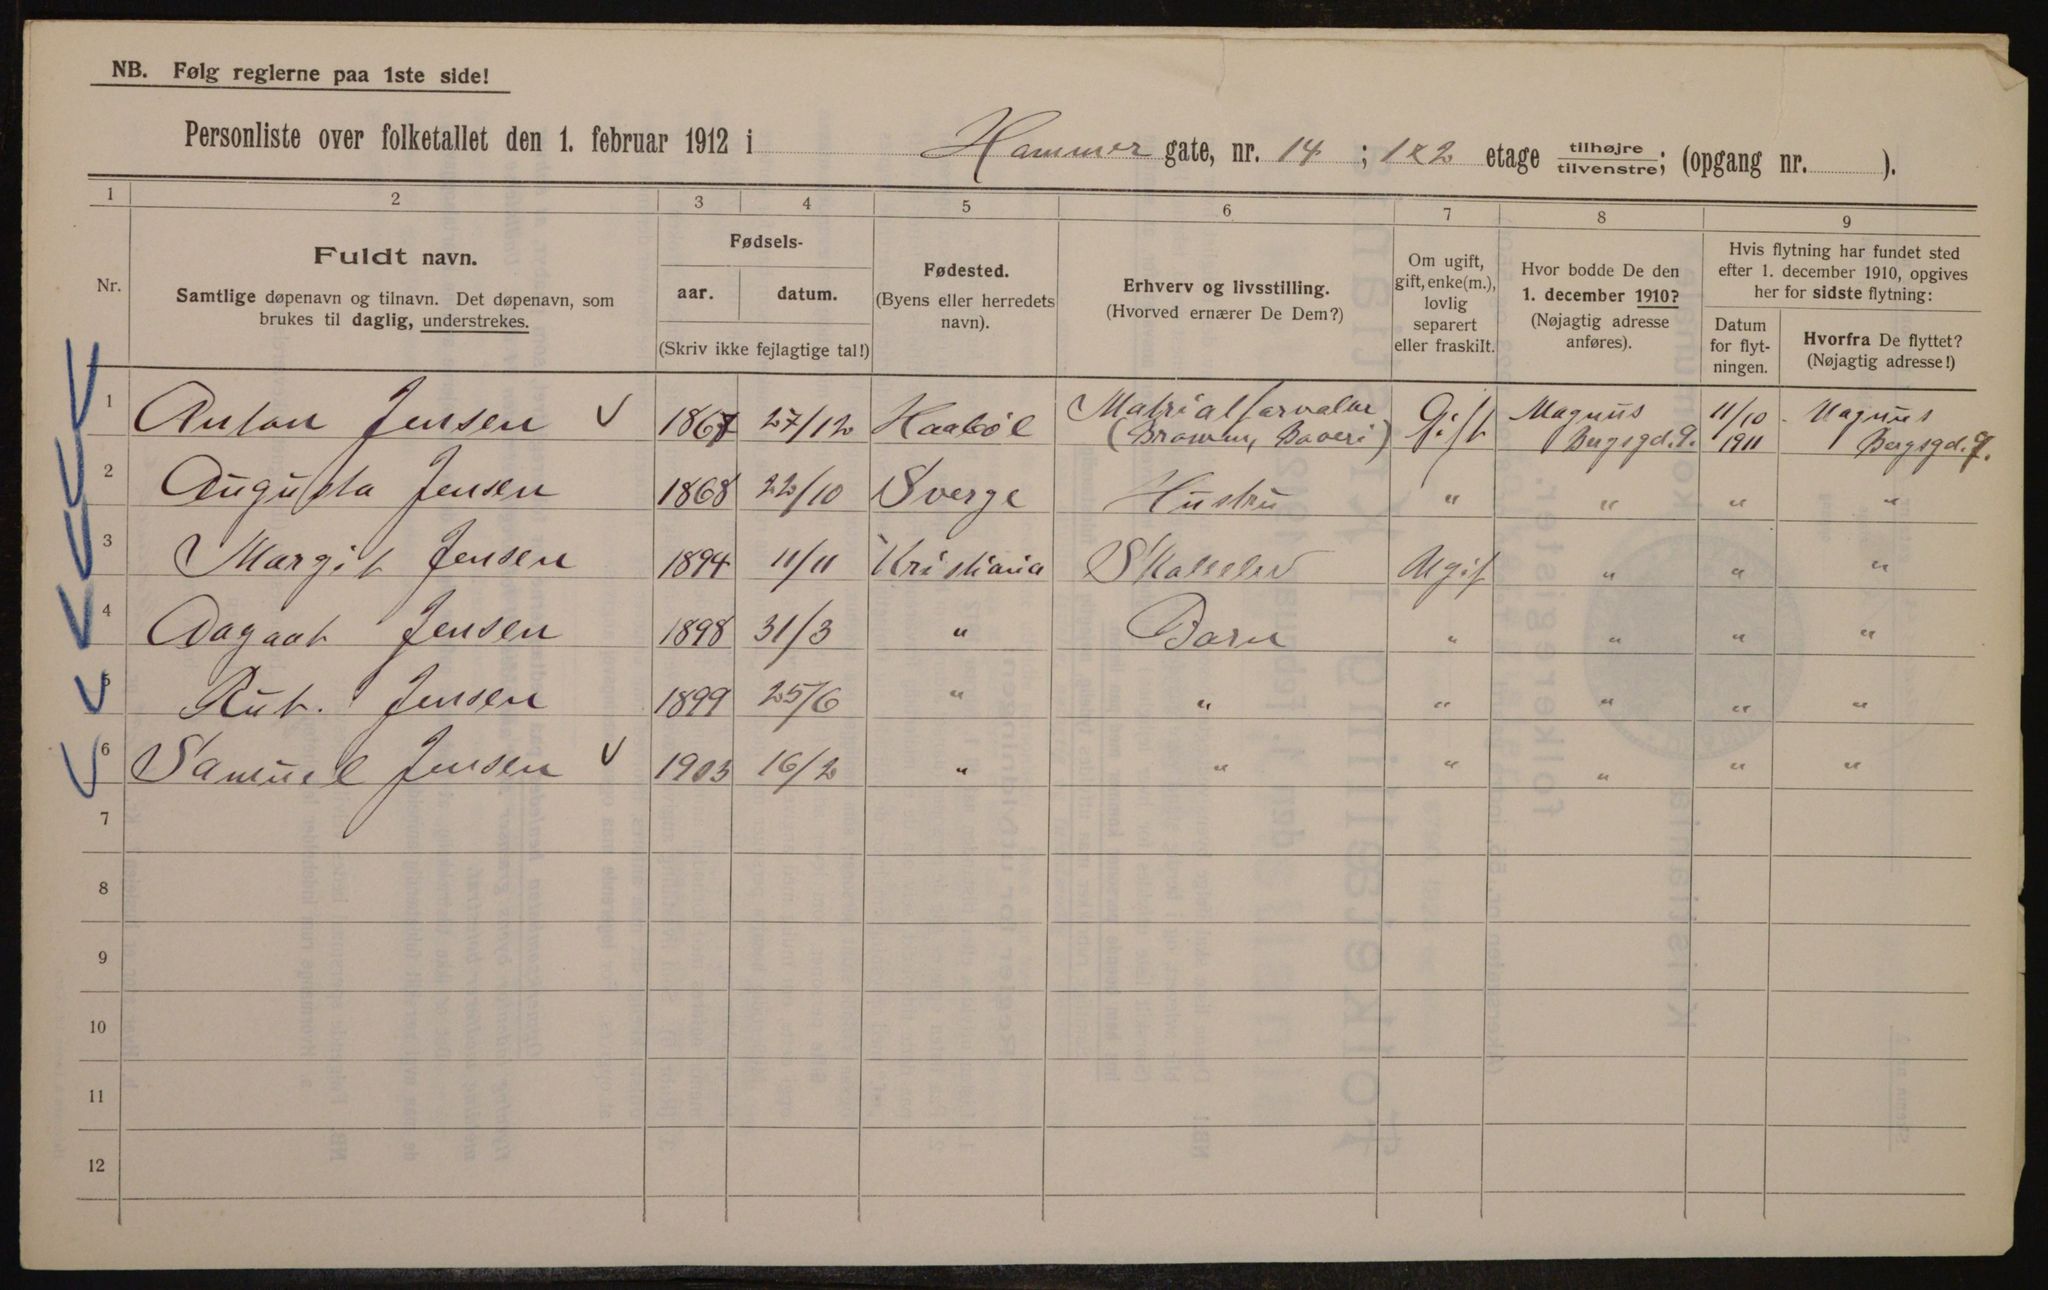 NB. Følg reglerne paa 1ste side!
Personliste over folketallet den 1. februar 1912 i Hammer gate, nr. 14 ; 1 & 2 etage tilhøjre/tilvenstre; (opgang nr. ).
1 2 3 4 5 6 7 8 9
Nr.
Fuldt navn.
Samtlige døpenavn og tilnavn. Det døpenavn, som
brukes til daglig, understrekes.
Fødsels-
aar. datum.
(Skriv ikke fejlagtige tal!)
Fødested.
(Byens eller herredets
navn).
Erhverv og livsstilling.
(Hvorved ernærer De Dem?)
Om ugift,
gift, enke(m.),
lovlig
separert
eller fraskilt.
Hvor bodde De den
1. december 1910?
(Nøjagtig adresse
anføres).
Hvis flytning har fundet sted
efter 1. december 1910, opgives
her for sidste flytning:
Datum
for flyt-
ningen.
Hvorfra De flyttet?
(Nøjagtig adresse!)
1 Anton Jensen 1867 27/12 Haabøl Matrialforvalter (Brown, Boveri) Gift Magnus Bergsgd. 9. 11/10 1911 Magnus Bergsgd. 9.
2 Augusta Jensen 1868 22/10 Sverge Hustru " " " "
3 Margit Jensen 1894 11/11 Kristiania Ugif " " "
4 Dagaat Jensen 1898 31/3 " Barn " " " "
5 Rut. Jensen 1899 25/6 " " " " " "
6 Samuel Jensen 1903 16/2 " " " " " "
7
8
9
10
11
12